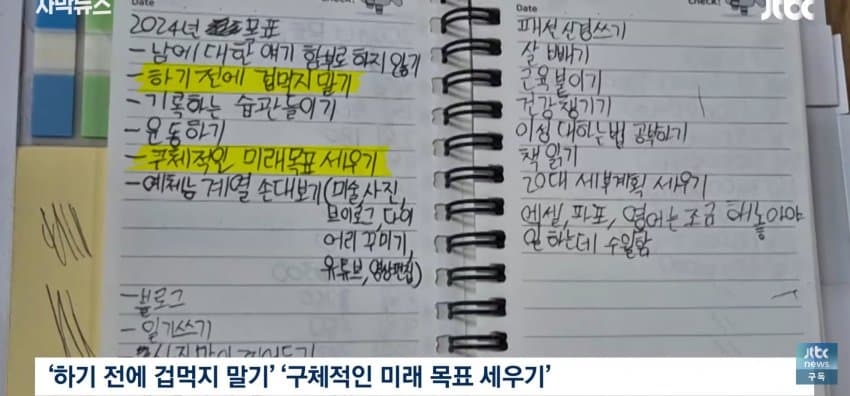 자막뉴스
jtbc
Date
Check!
2024년 목표
- 남에 대한 얘기 함부로 하지 않기
- 하기 전에 겁먹지 말기
- 기록하는 습관들이기
- 운동하기
- 구체적인 미래목표 세우기
- 예체능 계열 손대보기(미술,사진,
브이로그,다이
어리 꾸미기,
유튜브,영상편집)
- 블로그
- 일기쓰기
Date
패션 신경쓰기
살 빼기
근육 붙이기
건강 챙기기
이성 대하는법 공부하기
책 읽기
20대 세부계획 세우기
엑셀, 파포, 영어는 조금 해놓아야
일 하는데 수월함
'하기 전에 겁먹지 말기' '구체적인 미래 목표 세우기'
jtbc
news
구독